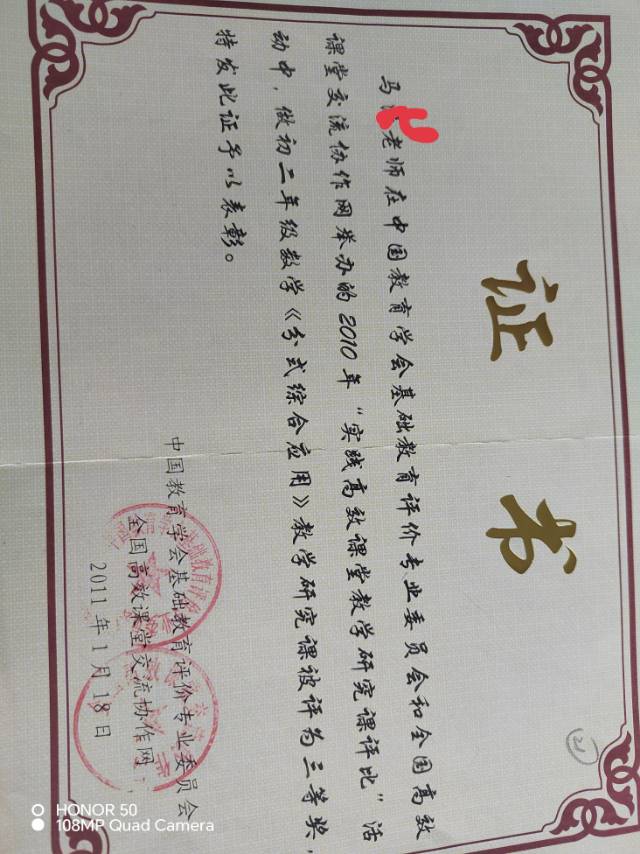 证 书
马 老师在中国教育学会基础教育评价专业委员会和全国高效
课堂交流协作网举办的2010年“实践高效课堂教学研究课评比”活
动中，做初二年级数学《分式综合应用》教学研究课被评为三等奖，
特发此证予以表彰。
中国教育学会基础教育评价专业委员会
全国高效课堂交流协作网
2011年1月18日
HONOR 50
108MP Quad Camera